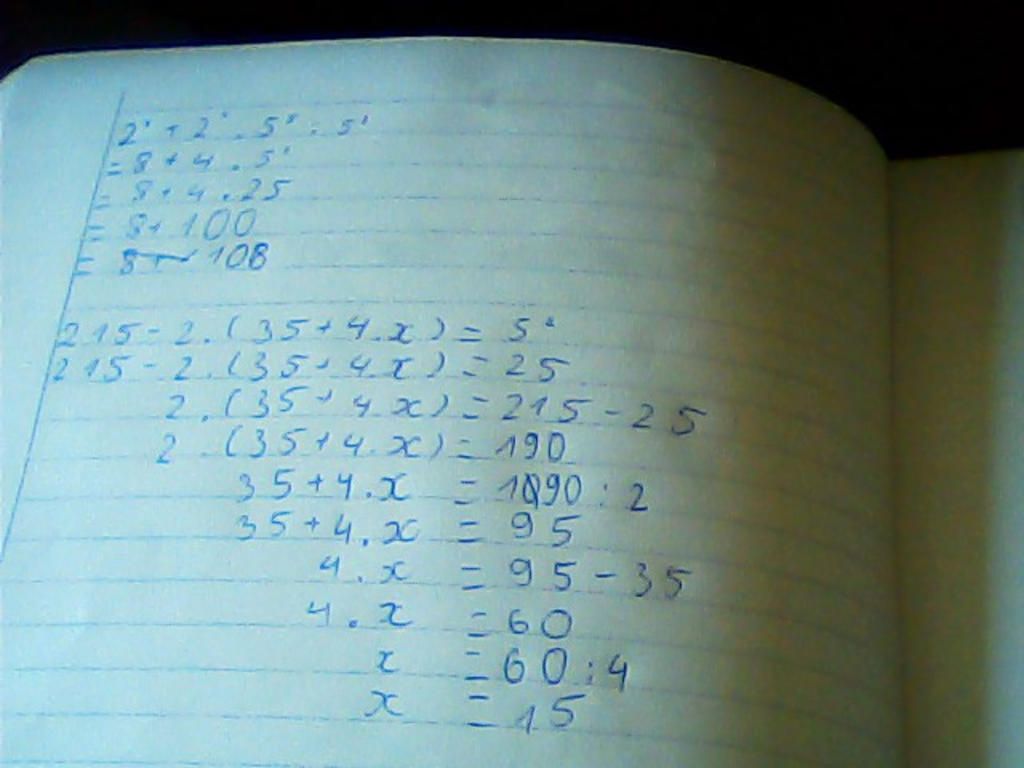 2³ + 2² . 5⁸ : 5⁶
= 8 + 4 . 5²
= 8 + 4 . 25
= 8 + 100
= 108
215 - 2 . (35 + 4 . x) = 5²
215 - 2 . (35 + 4 x) = 25
2 . (35 + 4 x) = 215 - 25
2 . (35 + 4 . x) = 190
35 + 4 . x = 190 : 2
35 + 4 . x = 95
4 . x = 95 - 35
4 . x = 60
x = 60 : 4
x = 15